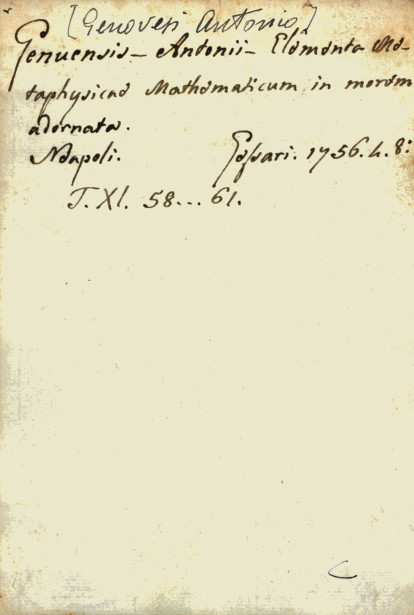 [Genovesi Antonio]
Genuensis - Antonii - Elementa Me-
taphysicae Mathematicum in morem
adornata.
Neapoli. Gessari. 1756. 4. 8:
T. XI. 58... 61.